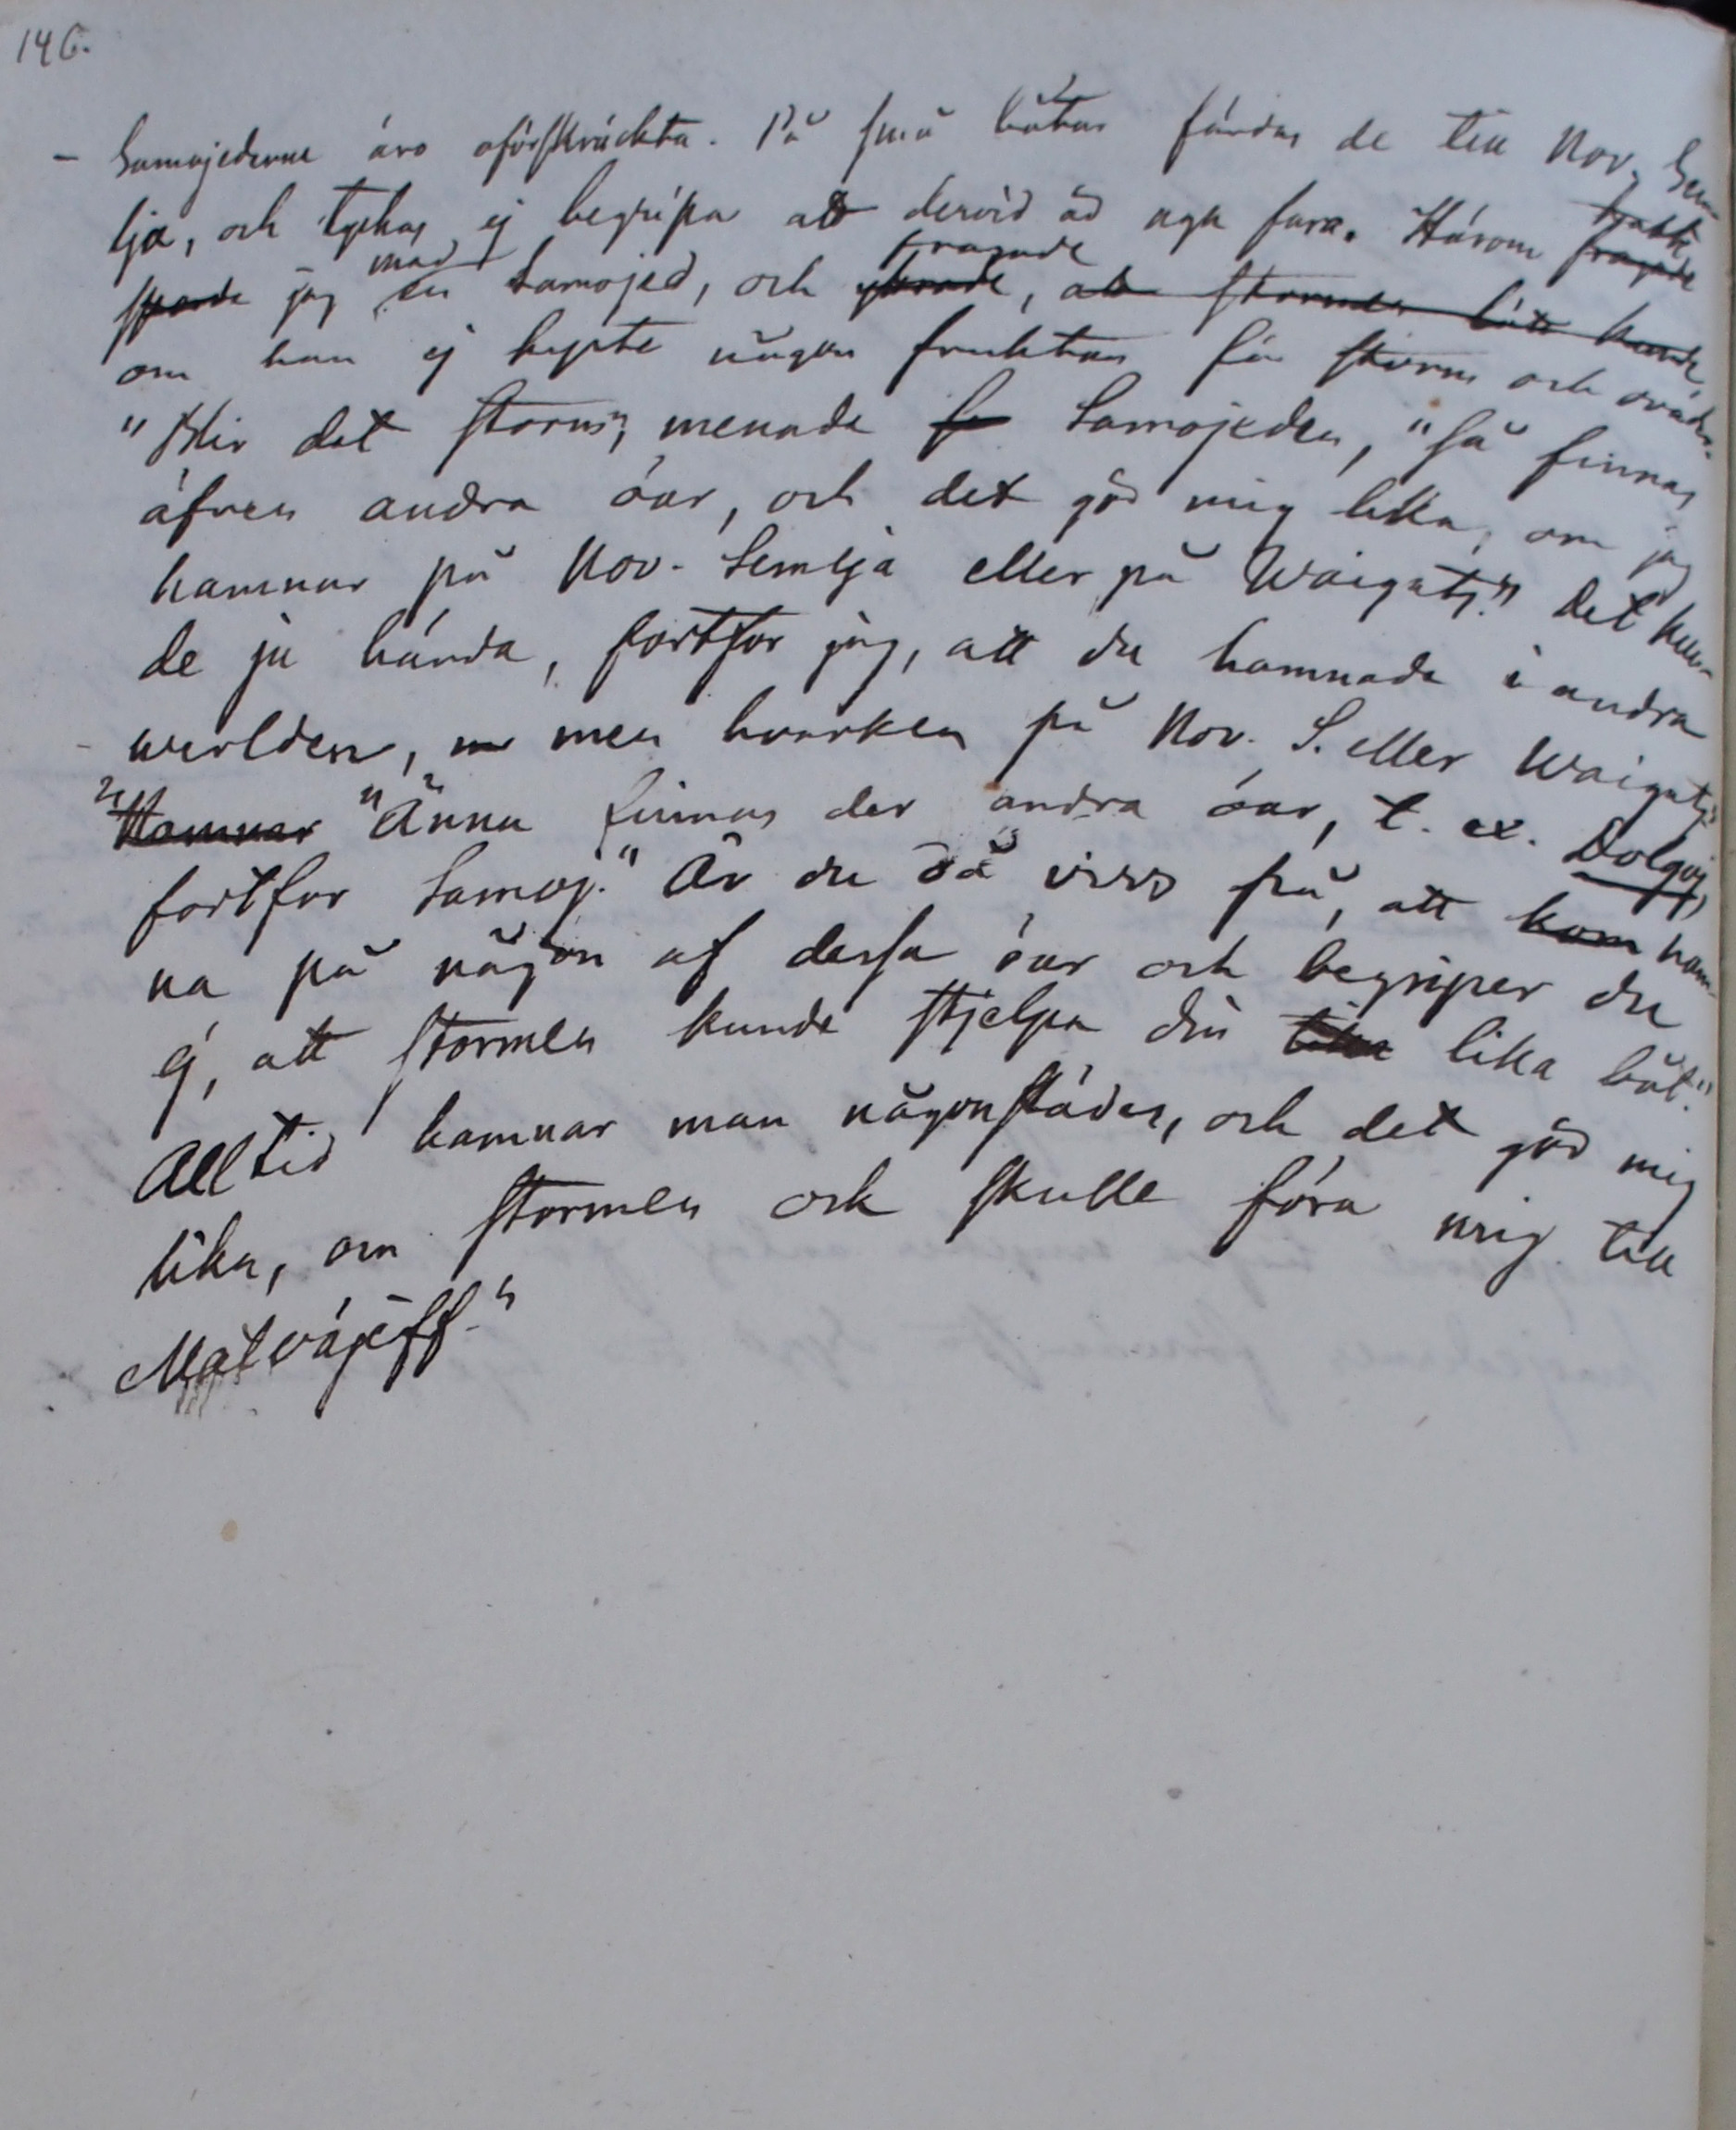 146.
– Samojederne äro oförskräckta. På små båtar färdas de till Nov. Sem-
lja, och tyckas ej begripa att dervid är ngn fara. Härom
jag med en Samojed, och frågade, att stormen lätt kunde
om han ej hyste någon fruktan för storm och oväder.
"Blir det storm", menade Samojeden, "så finnas
äfven andra öar, och det gör mig lika, om jag
hamnar på Nov. Semlja eller på Waigatz." Det kun-
de ju hända, fortfor jag, att du hamnade i andra
werlden, men hvarken på Nov. S. eller Waigatz"
"Hamnar "Ännu finnas der andra öar, t. ex. Dolgoj",
fortfor Samoj." Är du då viss på, att kom ham-
na på någon af dessa öar och begriper du
ej, att stormen kunde stjelpa din lika båt."
Alltid hamnar man någonstädes, och det gör mig
lika, om stormen och skulle föra mig till
Matväjeff."